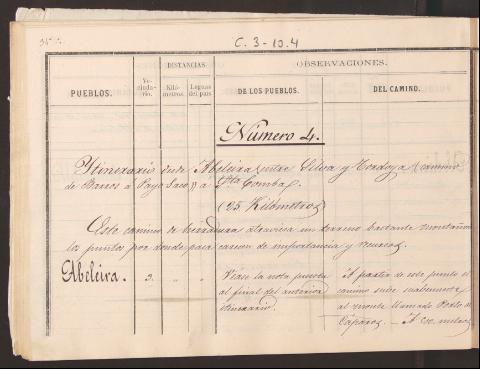 C. 3-10.4
DISTANCIAS.
OBSERVACIONES.
PUEBLOS.
Ve-
cinda-
rio.
Kiló-
metros.
Leguas
del país.
DE LOS PUEBLOS.
DEL CAMINO.
Número 4.
Itinerario desde Abeleira (entre Selva y Mordoya (camino
de Barros á Payo Saco)) á Sta Comba.
(25 Kilómetros)
Este camino de herradura atraviesa un terreno bastante montañoso
los puntos por donde pasa carecen de importancia y recursos.
Abeleira.
3.
"
"
Véase la nota puesta
al final del anterior
itinerario.
A partir de este punto el
camino sube suavemente
al monte llamado
- A 200 metros